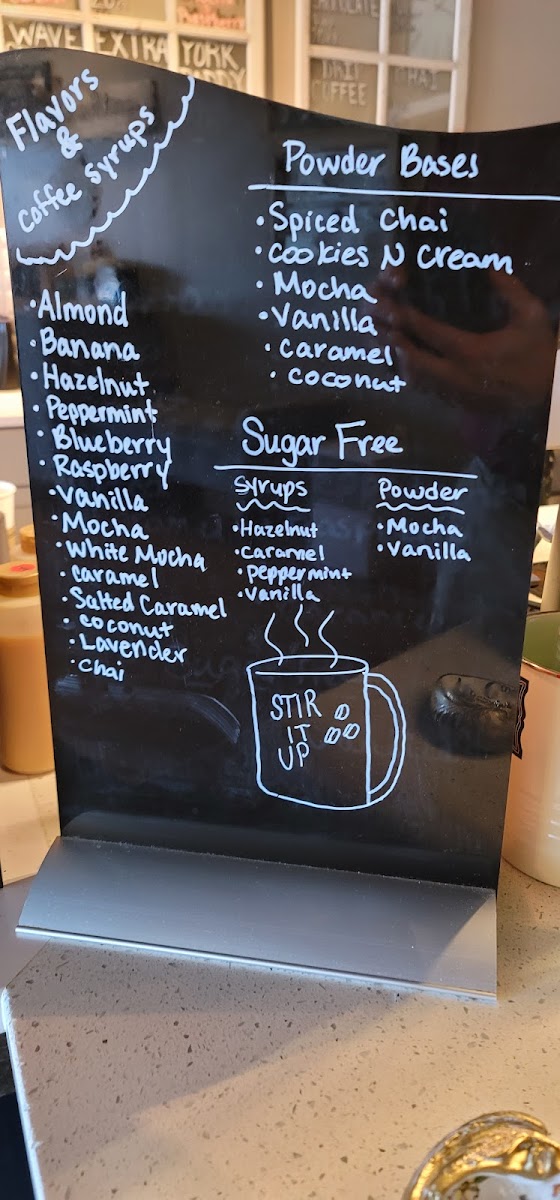 WAVE EXTRA YORK
COFFEE
Flavors
&
Coffee syrups
• Almond
• Banana
• Hazelnut
• Peppermint
• Blueberry
• Raspberry
• Vanilla
• Mocha
• White Mocha
• Caramel
• Salted Caramel
• Coconut
• Lavender
• Chai
Powder Bases
• Spiced Chai
• Cookies N Cream
• Mocha
• Vanilla
• Caramel
• Coconut
Sugar Free
Syrups
• Hazelnut
• Caramel
• Peppermint
• Vanilla
Powder
• Mocha
• Vanilla
STIR
IT
UP